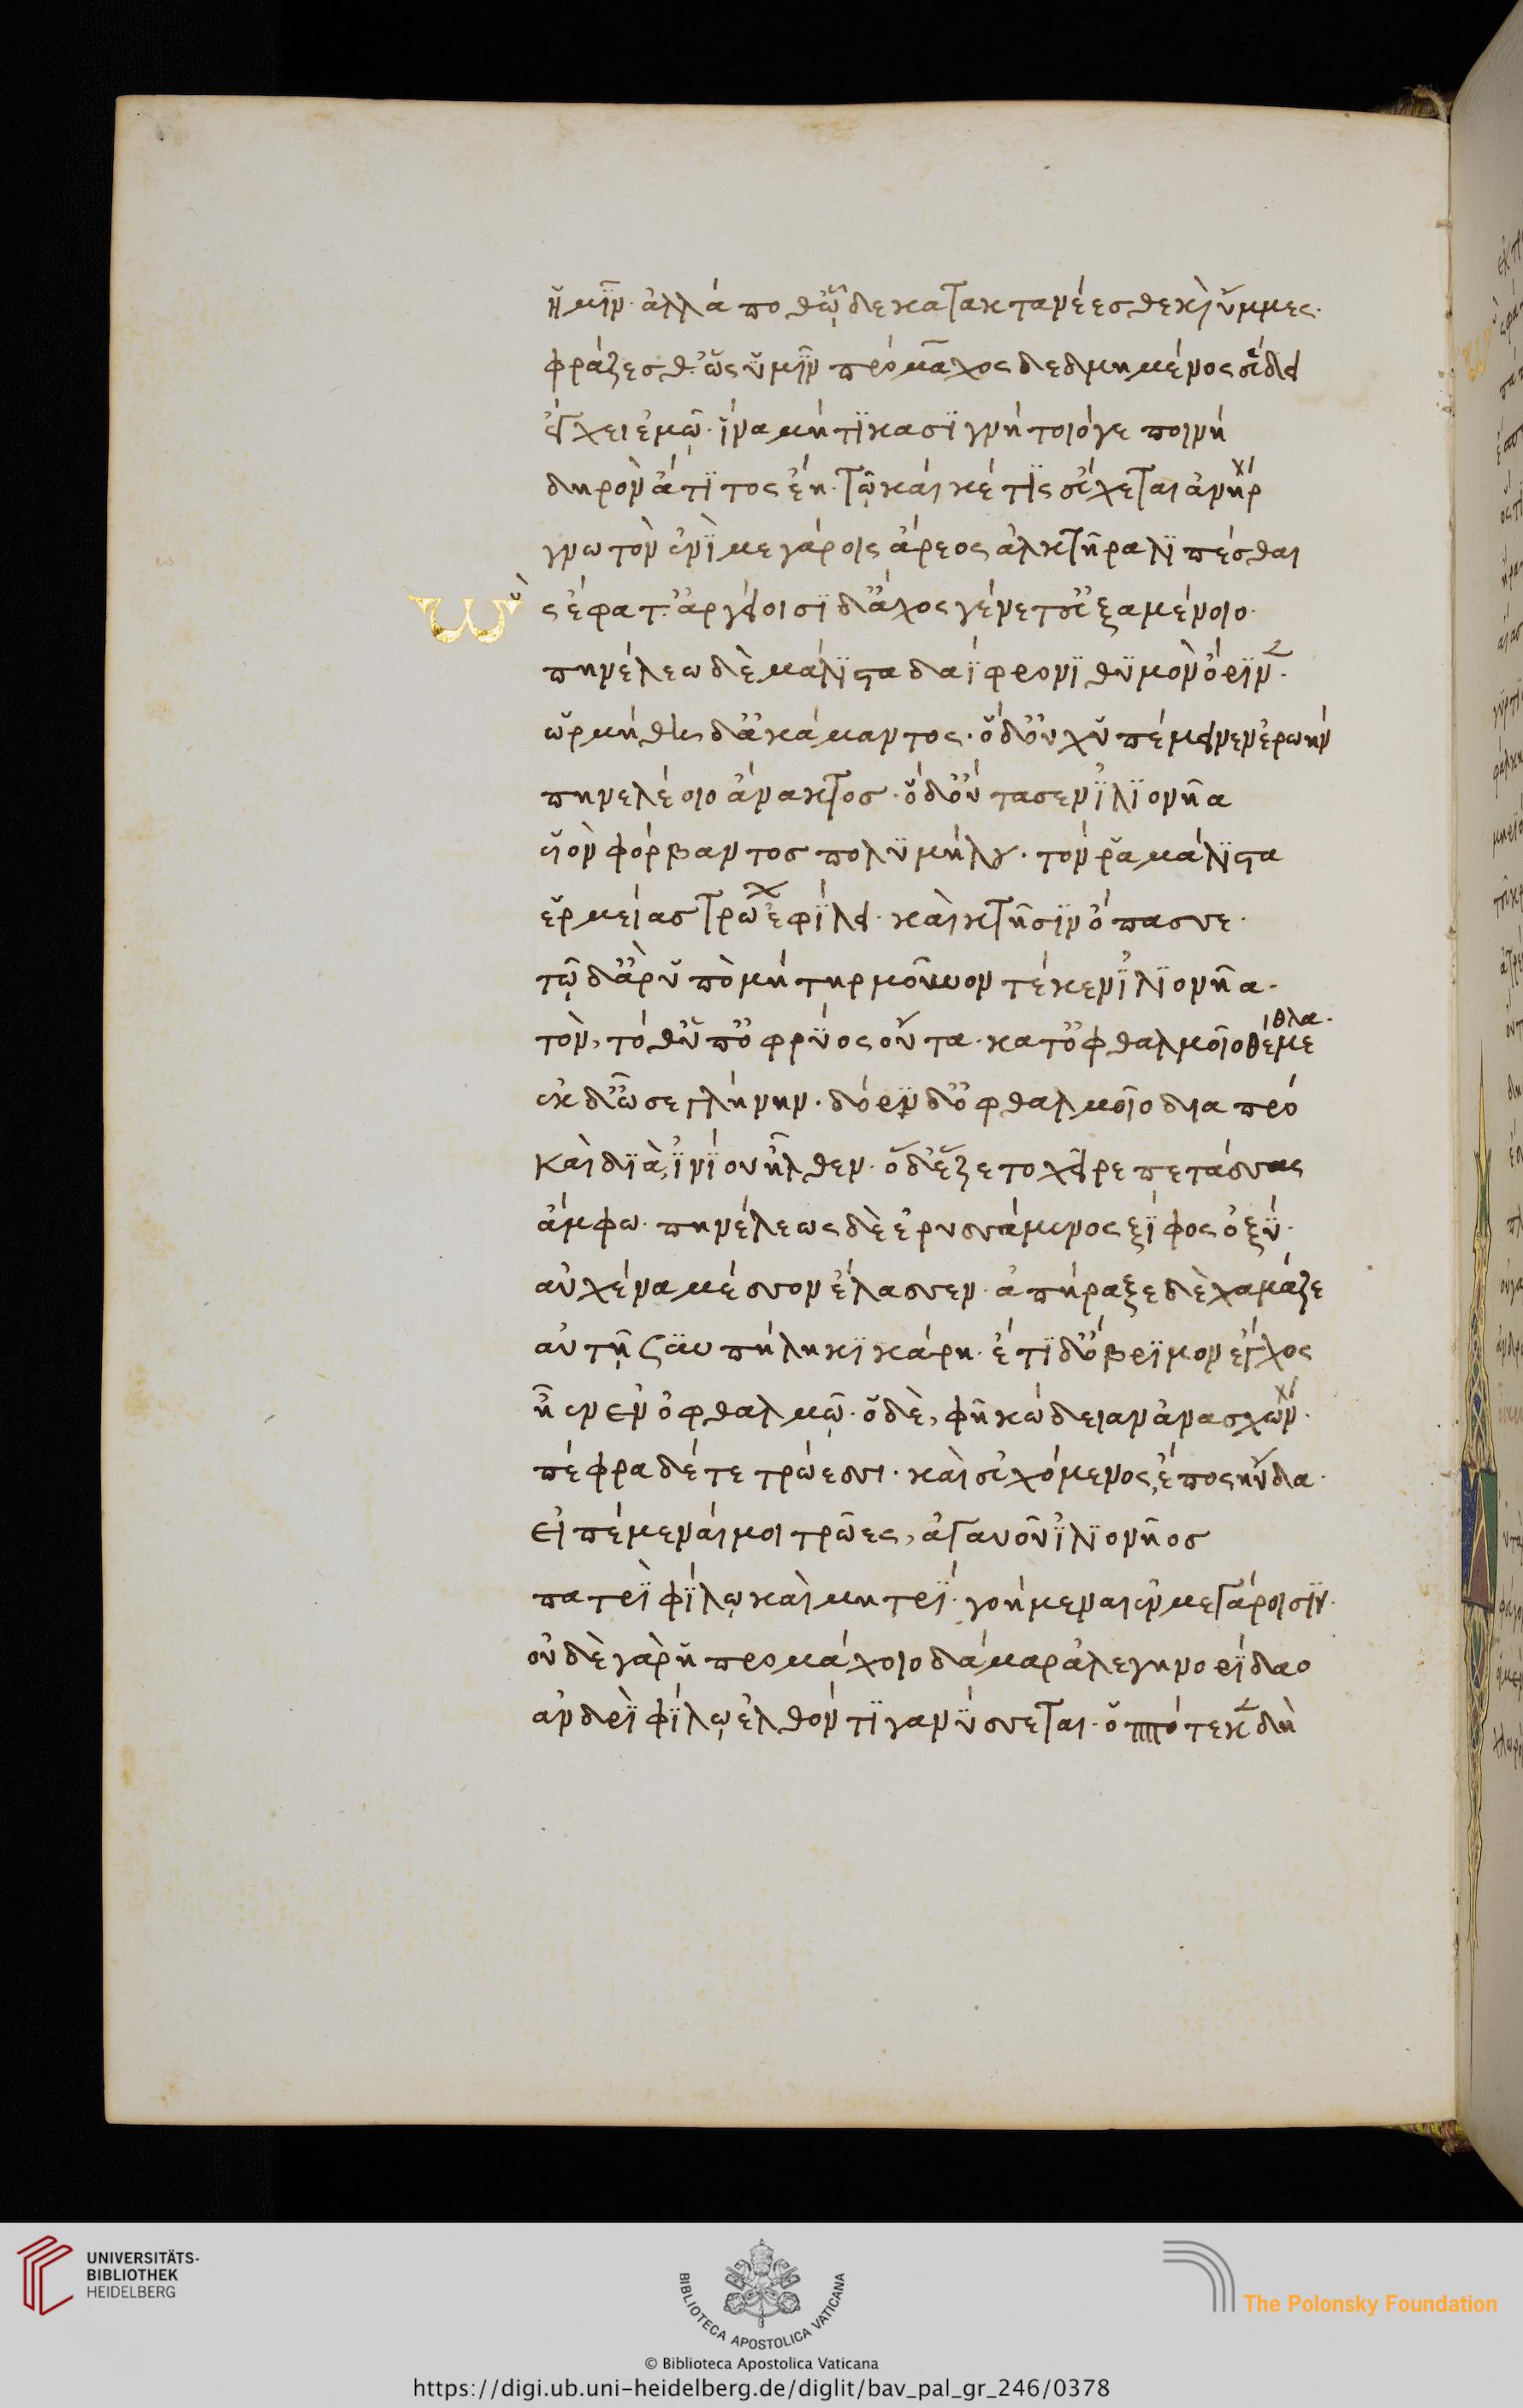 ἡμῖν· ἀλλά ποθ᾽ ὧδε κατακτανέεσθε κὶ ὔμμες·
φράζεσθ᾽ ὡς ὑμῖν πρόμαχος δεδμημένος εὕδει
ἔγχει ἐμῷ· ἵνα μήτι κασιγνήτοιό γε ποινὴ
δηρὸν ἄτιτος ἔῃ· τῷ καί κέ τις εὔχεται ἀνὴρ
γνωτὸν ἐνὶ μεγάροις ἄρεος ἀλκτῆρα λιπέσθαι
Ὣς ἔφατ᾽· ἀργείοισι δ᾽ ἄχος γένετ᾽ εὐξαμένοιο·
πηνέλεω δὲ μάλιστα δαΐφρονι θυμὸν ὄριν·
ὡρμήθη δ᾽ ἀκάμαντος· ὁ δ᾽ οὐχ ὑπέμεινεν ἐρωὴν
πηνελέοιο ἄνακτος· ὁ δ᾽ οὔτασεν ἰλιονῆα
υἱὸν φόρβαντος πολυμήλου· τόν ῥα μάλιστα
ἑρμείας τρώων ἐφίλει· καὶ κτῆσιν ὄπασσε·
τῷ δ᾽ ἄρ᾽ ὑπὸ μήτηρ μοῦνον τέκεν ἰλιονῆα·
τὸν, τόθ᾽ ὑπ᾽ ὀφρύος οὖτα· κατ᾽ ὀφθαλμοῖο θέμεθλα·
ἐκ δ᾽ ὦσε γλήνην· δόρυ δ᾽ ὀφθαλμοῖο διαπρὸ
καὶ διὰ, ἰνίου ἦλθεν· ὁ δ᾽ ἕζετο χεῖρε πετάσσας
ἄμφω· πηνέλεως δὲ ἐρυσσάμενος ξίφος ὀξύ·
αὐχένα μέσσον ἔλασσεν· ἀπήραξε δὲ χαμᾶζε
αὐτῇ σὺν πήληκι κάρη· ἔτι δ᾽ ὄβριμον ἔγχος
ἦεν ἐν ὀφθαλμῷ· ὁ δὲ, φῆ κώδειαν ἀνασχών·
πέφραδέ τε τρώεσσι· καὶ εὐχόμενος, ἔπος ηὔδα·
εἰπέμεναί μοι τρῶες, ἀγαυοῦ ἰλιονῆος
πατρὶ φίλῳ καὶ μητρί· γοήμεναι ἐν μεγάροισιν·
οὐδὲ γὰρ ἡ προμάχοιο δάμαρ ἀλεγηνορίδαο
ἀνδρὶ φίλῳ ἐλθόντι γανύσσεται· ὁππότε κεν δὴ
UNIVERSITÄTS-
BIBLIOTHEK
HEIDELBERG
BIBLIOTECA APOSTOLICA VATICANA
The Polonsky Foundation
© Biblioteca Apostolica Vaticana
https://digi.ub.uni-heidelberg.de/diglit/bav_pal_gr_246/0378